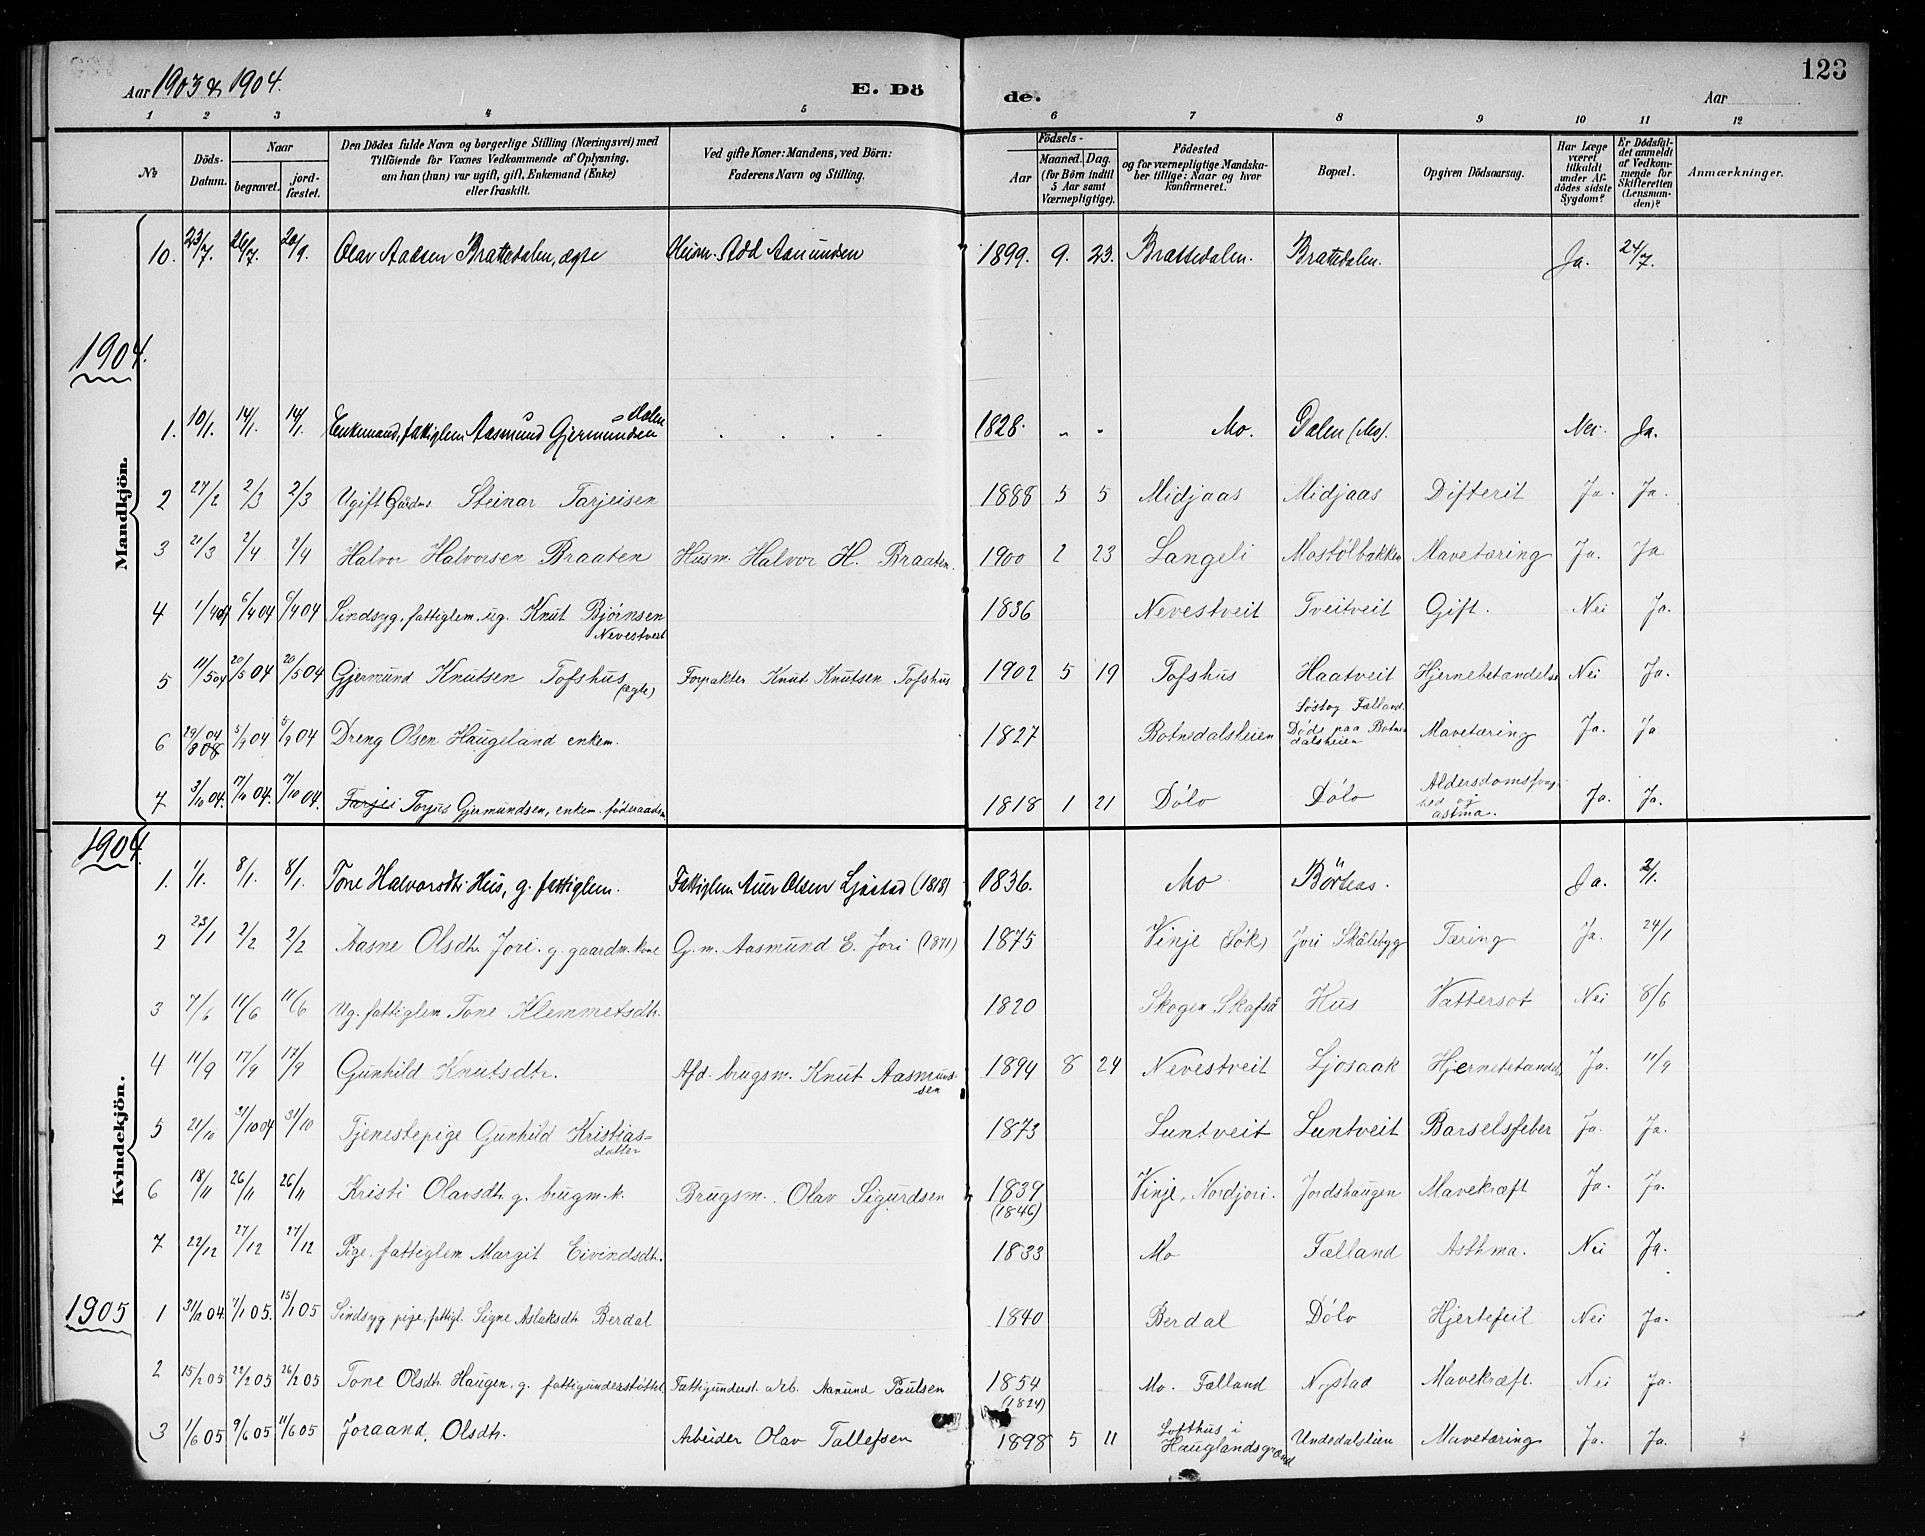 Aar 1903 & 1904.
E. Dö de.
Aar
123
1 2 3 4 5 6 7 8 9 10 11 12
№
Döds-Datum.
Naar
begravet.
jord-fæstet.
Den Dödes fulde Navn og borgerlige Stilling (Næringsvei) med
Tilföiende for Voxnes Vedkommende af Oplysning,
om han (hun) var ugift, gift, Enkemand (Enke)
eller fraskilt.
Ved gifte Koner: Mandens, ved Börn:
Faderens Navn og Stilling.
Födsels-
Aar
Maaned. Dag.
(for Börn indtil
5 Aar samt
Værnepligtige).
Födested
og for værnepligtige Mandska-
ber tillige: Naar og hvor
konfirmeret.
Bopæl.
Opgiven Dödsaarsag.
Har Læge
været
tilkaldt
under Af-
dödes sidste
Sygdom?
Er Dödsfal-
det anmeldt
af Vedkom-
mende for
Skifteretten
(Lensman-
den)?
Anmærkninger.
10. 23/7. 26/7. 20/9. Olav Aadsen Brattedalen, ægte Husm. Add Asmundsen 1899. 9. 23. Brattedalen. Brattedalen. Ja. 24/7.
1904.
Mandkjön.
1. 10/1. 14/1. 14/1. Enkemand, fattiglem Aasmund Gjermundsen Dalen 1828. " " Mo. Dalen (Mo). Nei. Ja.
2 27/2 2/3 2/3 Ugift Gaardm Steinar Tarjeisen 1888 5 5 Midjaas Midjaas Difterit Ja. Ja.
3 21/3 2/4 2/4 Halvor Halvorsen Braaten Husm. Halvor H. Braaten. 1900 2 23 Langeli Mostølbakken Mavetæring Ja. Ja
4 1/4 04 6/4 04 6/4 04 Sindsyg, fattiglem, ug. Knut Bjørnsen Nevestveit 1836 Nevestveit Tveitveit Gift. Nei Ja.
5 11/5 04 20/5 04 20/5 04 Gjermund Knutsen Tofshus (ægte) Forpakter Knut Knutsen Tofshus 1902 5 19 Tofshus Haatveit Hjernebetændelse Nei Ja.
6 29/8 04 5/9 04 5/9 04 Dreng Olsen Haugeland enkem. 1827 Botnedalsheien Fælland. Døde paa Botnedalsheien Mavetæring Ja. Ja
7 3/10 04. 7/10 04. 7/10 04. Tarjei Torjus Gjermundsen, enkem. føderaadsm 1818 1 21 Dølo Dølo Aldersdomssvaghed og astma. Ja. Ja.
1904.
Kvindekjön.
1. 1/1. 8/1. 8/1. Tone Halvorsdtr Hus, g. fattiglem. Fattiglem Auver Olsen Ljøstad (1818) 1836. Mo Börteas. Ja. 2/1.
2 23/1 2/2 2/2 Aasne Olsdtr. Jori. g. gaardm. kone G. m. Aasmund E. Jori (1871) 1875 Vinje (Søk) Jori Skålebyg Tæring Ja. 24/1
3 7/6 11/6 11/6 Ug. fattiglem Tone Klemmetsdtr. 1820 Skogen Skafså Hus Vattersot Nei 8/6
4 11/9 17/9 17/9 Gunhild Knutsdtr. Afd. brugsm. Knut Aasmundsen 1894 8 24 Nevestveit Ljosaak Hjernebetændels Ja. 11/9
5 21/10 31/10 04 31/10 Tjenestepige Gunhild Kristiasdatter 1873 Luntveit Luntveit Barselsfeber Ja. Ja.
6 18/11 26/11 26/11 Kristi Olavsdtr g. brugm. k. Brugsm. Olav Sigurdsen 1839 (1846) Vinje, Nordjori. Jordshaugen Mavekræft Ja. Ja.
7 22/12 27/12 27/12 Pige, fattiglem Margit Eivindsdtr. 1833 Mo Fælland Asthma. Nei Ja.
1905
1 31/12 04. 7/1 05. 15/1 05 Sindsyg pige, fattigl. Signe Aslaksdtr Berdal 1840 Berdal Dølo Hjertefeil Nei Ja.
2 15/2 05 22/2 05 26/2 05 Tone Olsdtr. Haugen, g. fattigunderstøttet Fattigunderst. arb. Aanund Paulsen 1854 (1824) Mo. Fælland Nystad Mavekræft. Nei Ja.
3 1/6 05 9/6 05 11/6 05 Joraand Olsdtr. Arbeider Olav Tallefsen 1898 5 11 Lofthus i Hauglandsgrænd Undedalslien Mavetæring Ja. Ja.